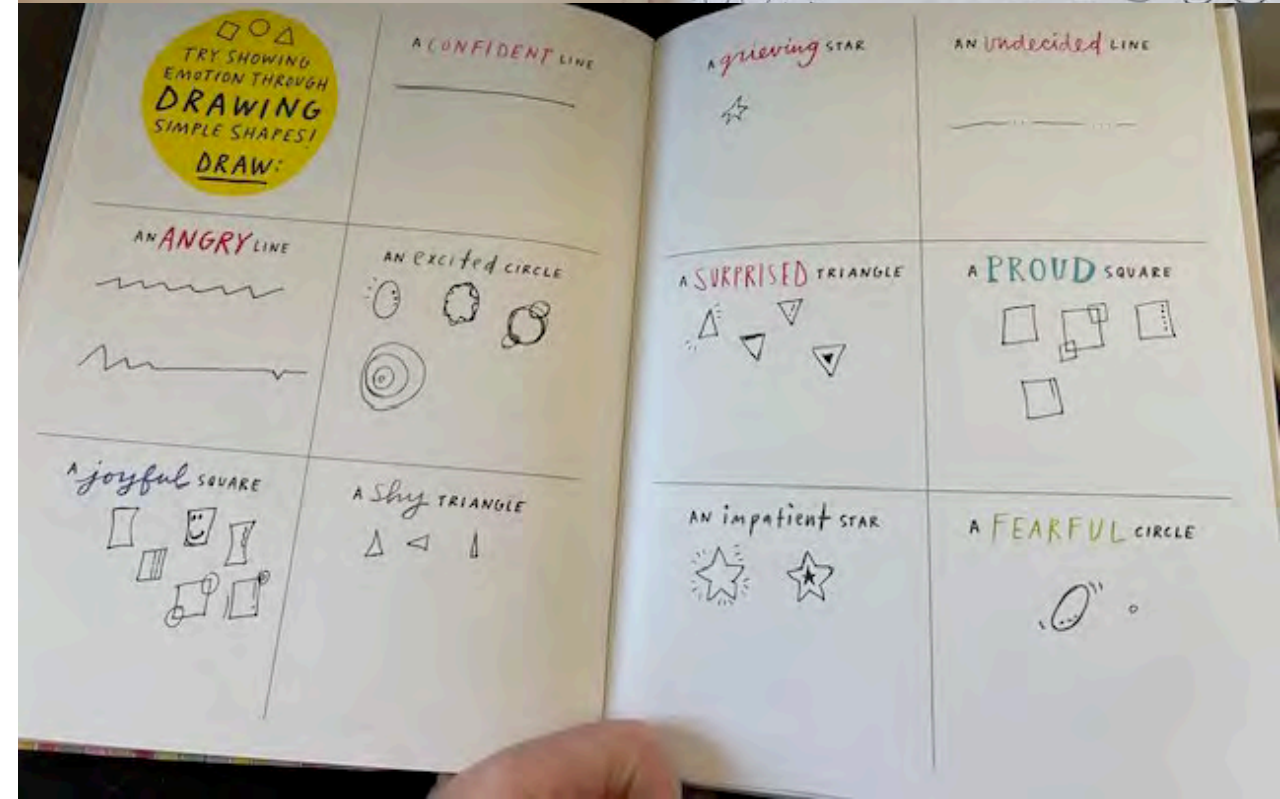 TRY SHOWING
EMOTION THROUGH
DRAWING
SIMPLE SHAPES!
DRAW:
A CONFIDENT LINE
AN ANGRY LINE
AN excited CIRCLE
A joyful SQUARE
A Shy TRIANGLE
A grieving STAR
AN undecided LINE
A SURPRISED TRIANGLE
A PROUD SQUARE
AN impatient STAR
A FEARFUL CIRCLE